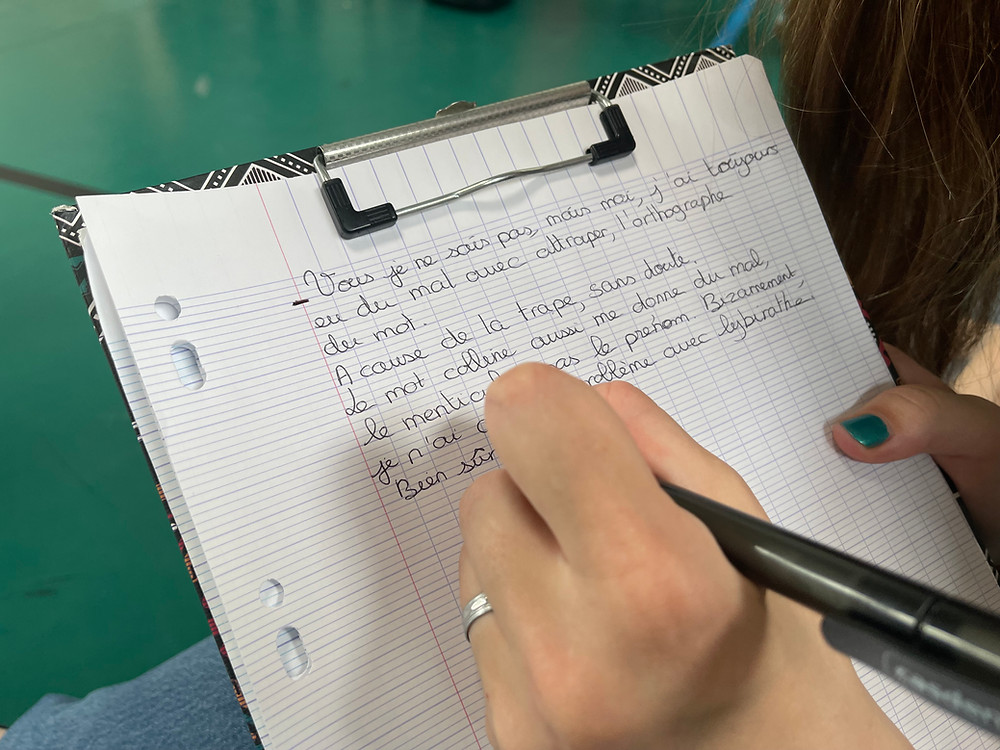 Vous je ne sais pas, mais moi, j'ai toujours
eu du mal avec attraper, l'orthographe
du mot.
A cause de la trape, sans doute.
Le mot colline aussi me donne du mal,
le pas le prénom. Bizarrement
je n'ai avec
Bien sûr